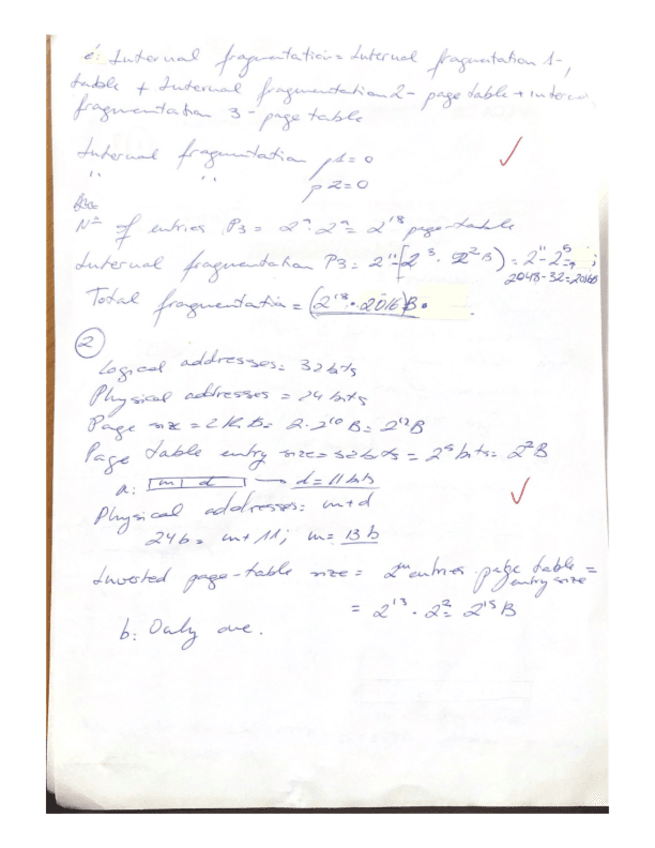 é: Internal fragmentation = Internal fragmentation 1-,
table + Internal fragmentation 2- page table + inter
fragmentation 3 - page table
Internal fragmentation p1 = 0
" " p2 = 0
Nº of entries P3 = 2^9 · 2^9 = 2^18 page-table
Internal fragmentation P3 = 2^11 - [2^3 · 2^2 B] = 2^11 - 2^5 = ;
2048-32=2016B
Total fragmentation = (2^18 · 2016)B.
2
Logical addresses = 32 bits
Physical addresses = 24 bits
Page size = 2KB = 2·2^10 B = 2^12 B
Page table entry size = 32 bits = 2^5 bits = 2^2 B
a: m d → d = 11 bits
Physical addresses: m+d
24b = m + 11; m = 13 b
Inverted page-table size = 2^m entries · page table =
entry size
= 2^13 · 2^2 = 2^15 B
b: Only one.